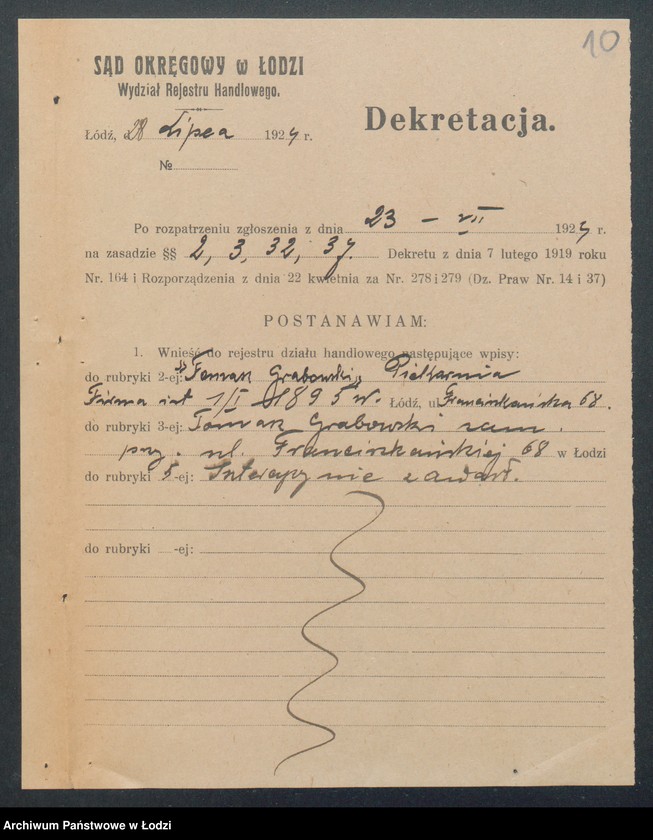 10
SĄD OKRĘGOWY w ŁODZI
Wydział Rejestru Handlowego.
Dekretacja.
Łódź, d 28 Lipca 1924 r.
№
Po rozpatrzeniu zgłoszenia z dnia 23 – VII 1924 r.
na zasadzie §§ 2, 3, 32, 37. Dekretu z dnia 7 lutego 1919 roku
Nr. 164 i Rozporządzenia z dnia 22 kwietnia za Nr. 278 i 279 (Dz. Praw Nr. 14 i 37)
POSTANAWIAM:
1. Wnieść do rejestru działu handlowego następujące wpisy:
do rubryki 2-ej: „Tomasz Grabowski„ Piekarnia
Firma ist 1/I 1895 r. Łódź, ul Franciszkańska 68.
do rubryki 3-ej: Tomasz Grabowski zam.
przy. ul. Franciszkańskiej 68 w Łodzi
do rubryki 5-ej: Intercyzy nie zawarł.
do rubryki -ej:
Archiwum Państwowe w Łodzi